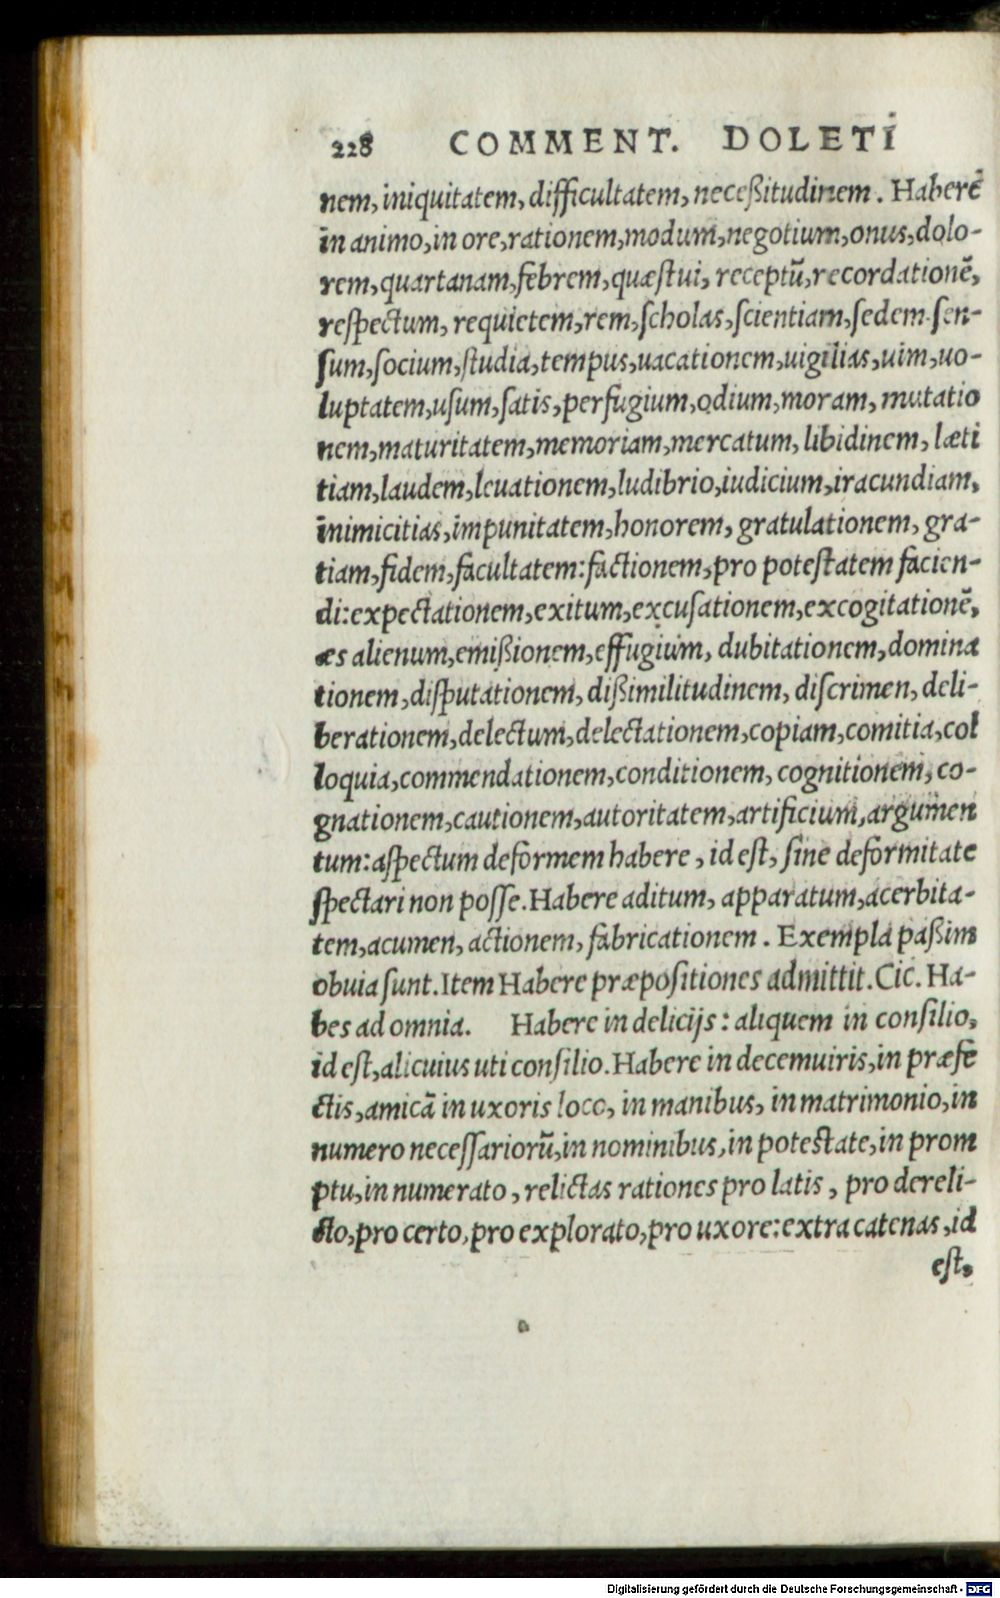 228 COMMENT. DOLETI
nem, iniquitatem, difficultatem, neceßitudinem. Habere
in animo, in ore, rationem, modum, negotium, onus, dolo-
rem, quartanam, febrem, quæstui, receptū, recordationē,
respectum, requietem, rem, scholas, scientiam, sedem. sen-
sum, socium, studia, tempus, uacationem, uigilias, uim, uo-
luptatem, usum, satis, perfugium, odium, moram, mutatio
nem, maturitatem, memoriam, mercatum, libidinem, læti
tiam, laudem, leuationem, ludibrio, iudicium, iracundiam,
inimicitias, impunitatem, honorem, gratulationem, gra-
tiam, fidem, facultatem: factionem, pro potestatem facien-
di: expectationem, exitum, excusationem, excogitationē,
æs alienum, emißionem, effugium, dubitationem, domina
tionem, disputationem, dißimilitudinem, discrimen, deli-
berationem, delectum, delectationem, copiam, comitia, col
loquia, commendationem, conditionem, cognitionem, co-
gnationem, cautionem, autoritatem, artificium, argumen
tum: aspectum deformem habere, id est, sine deformitate
spectari non posse. Habere aditum, apparatum, acerbita-
tem, acumen, actionem, fabricationem. Exempla paßim
obuia sunt. Item Habere præpositiones admittit. Cic. Ha-
bes ad omnia. Habere in delicijs: aliquem in consilio,
id est, alicuius uti consilio. Habere in decemuiris, in præfe
ctis, amicā in uxoris loco, in manibus, in matrimonio, in
numero necessariorū, in nominibus, in potestate, in prom
ptu, in numerato, relictas rationes pro latis, pro dereli-
cto, pro certo, pro explorato, pro uxore: extra catenas, id
est,
Digitalisierung gefördert durch die Deutsche Forschungsgemeinschaft - DFG